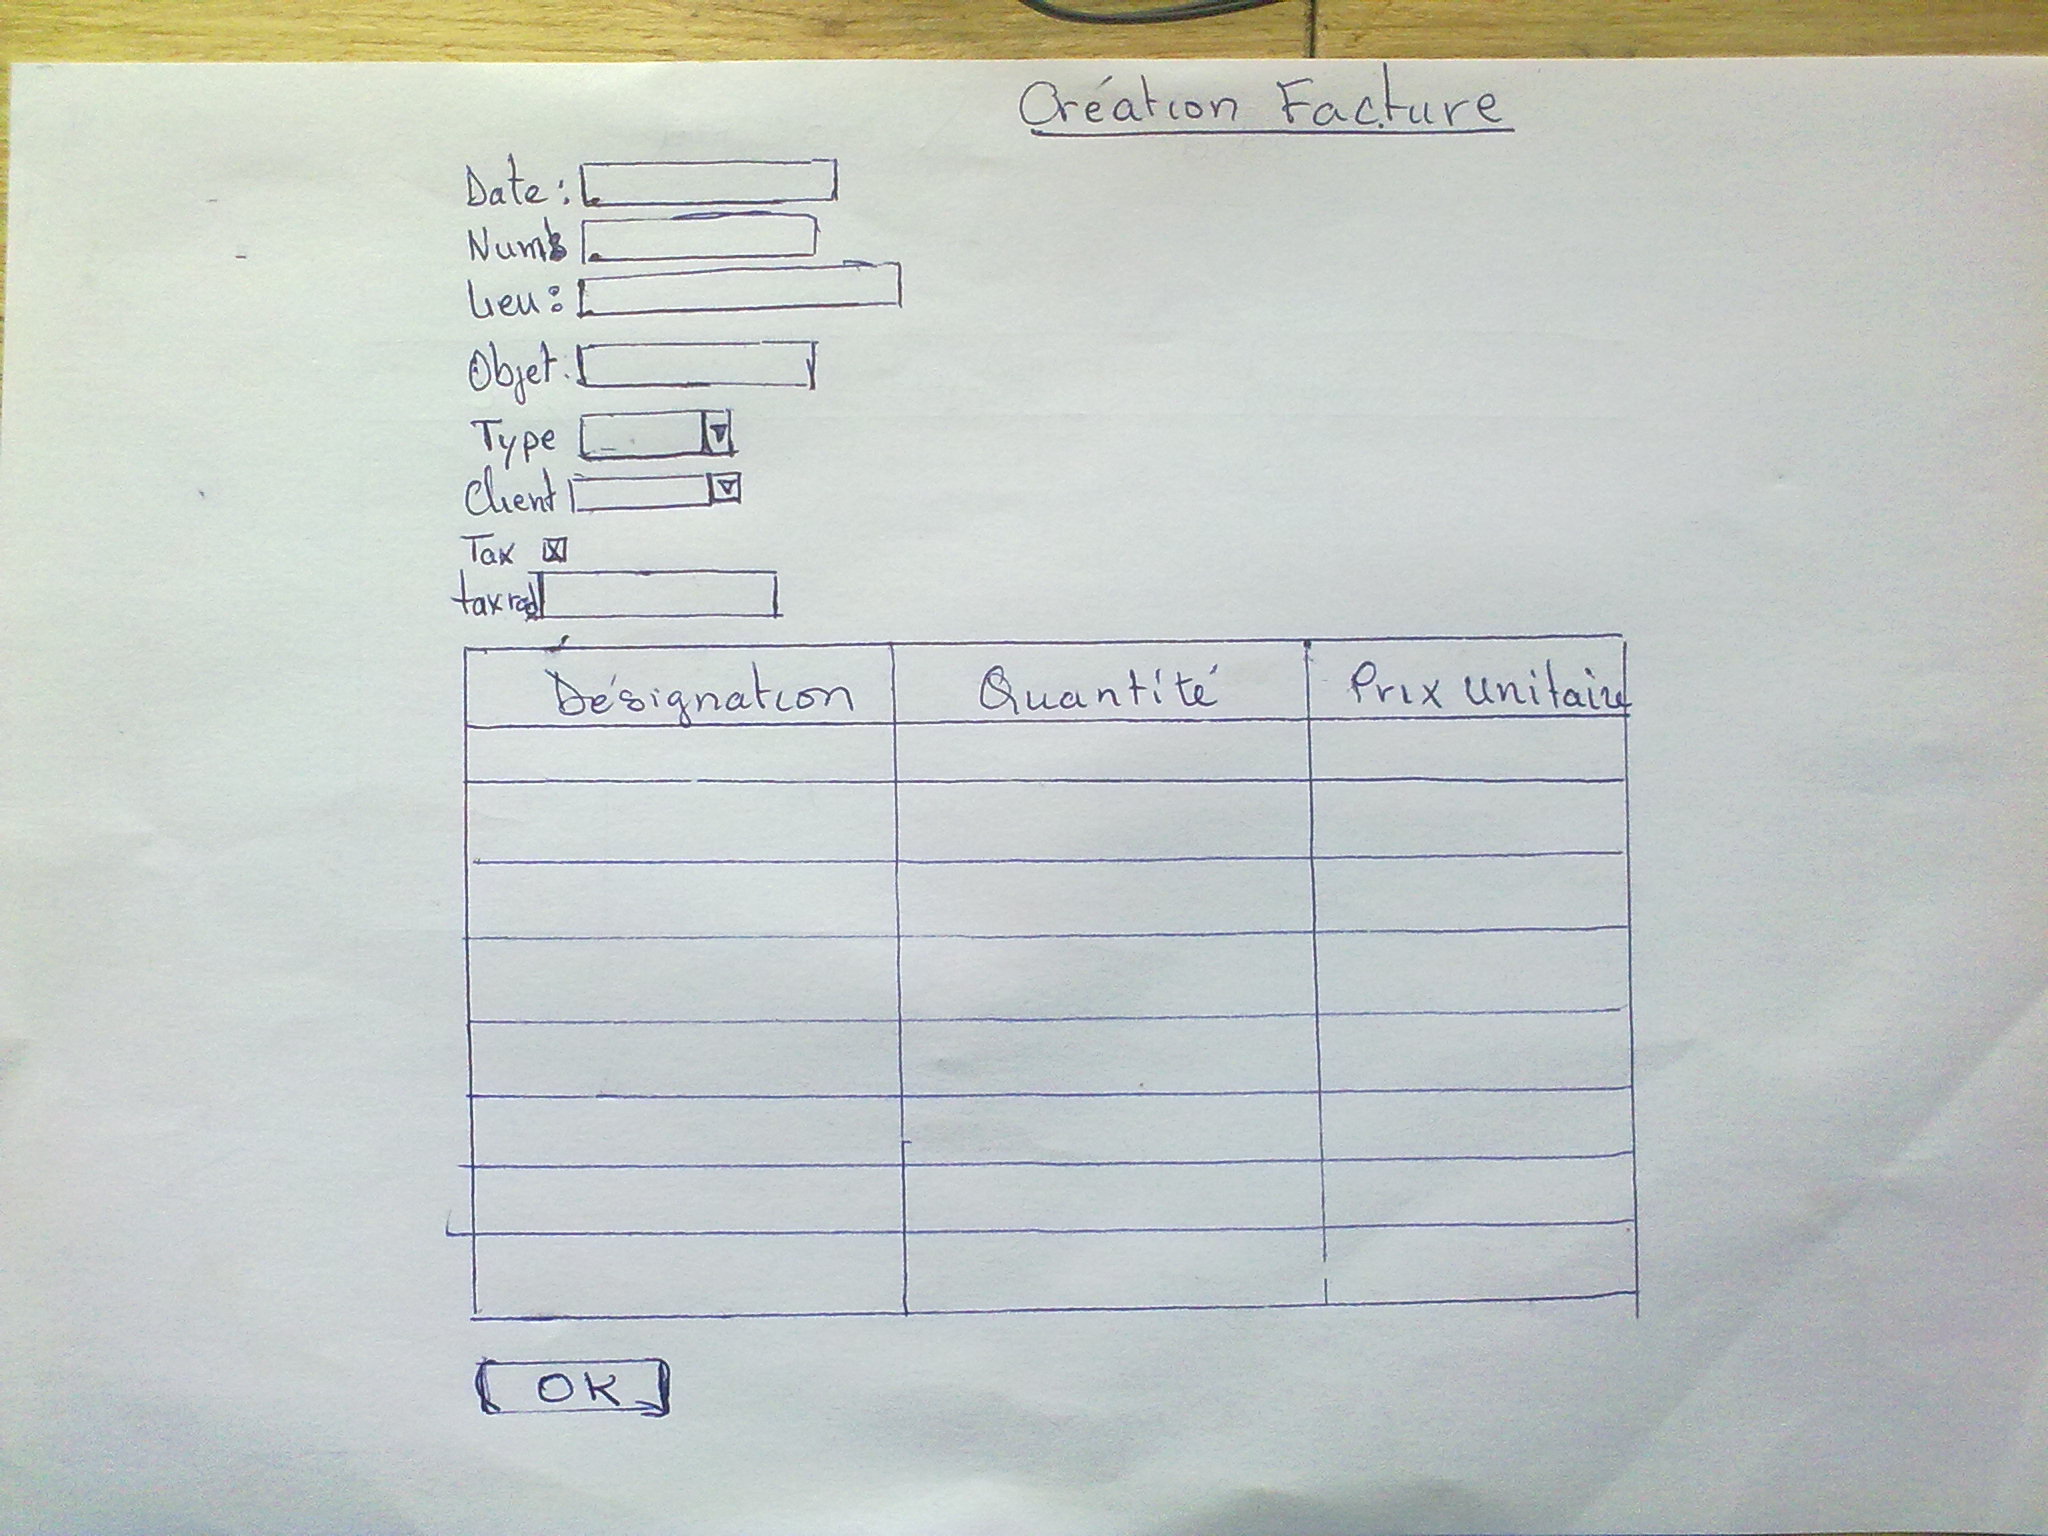 Création Facture
Date :
Numb
Lieu :
Objet :
Type
Client
Tax
Désignation Quantité Prix unitaire
OK